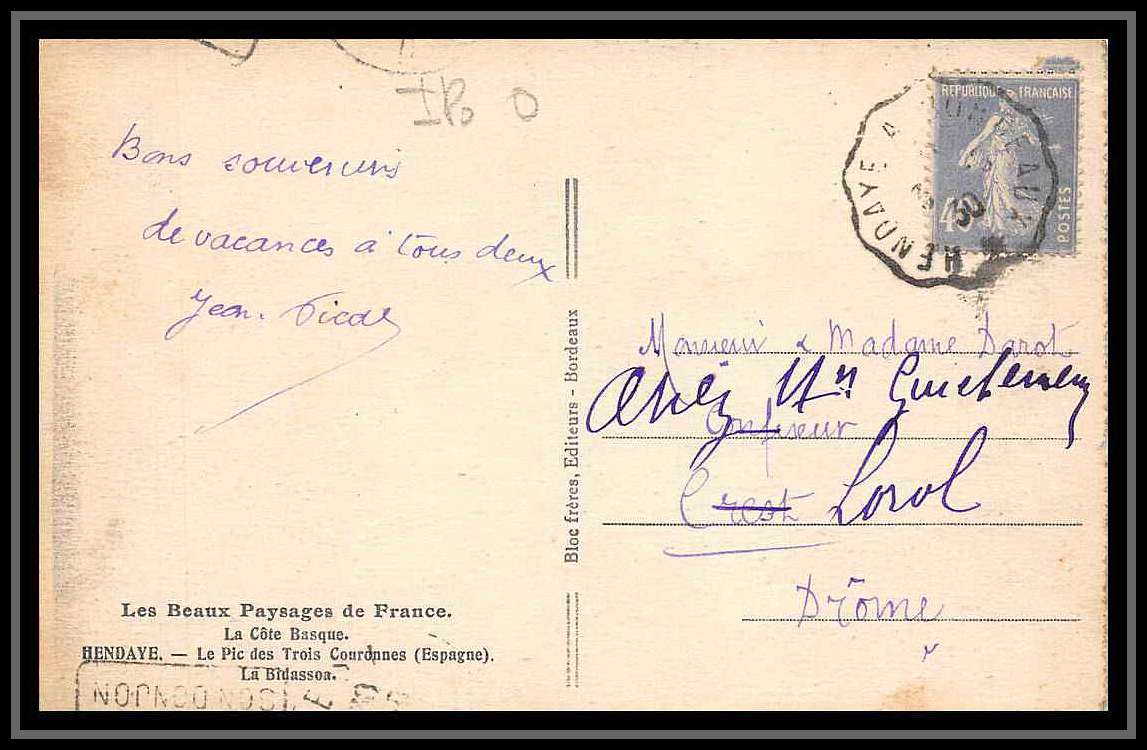 Bons souvenirs
de vacances à tous deux
Jean
Bloc frères, Editeurs - Bordeaux
REPUBLIQUE FRANCAISE
POSTES
40
HENDAYE A BORDEAUX
30
Monsieur & Madame Darot
chez Mr
Confiseur
Crest Loriol
Drôme
Les Beaux Paysages de France.
La Côte Basque.
HENDAYE. — Le Pic des Trois Couronnes (Espagne).
La Bidassoa.